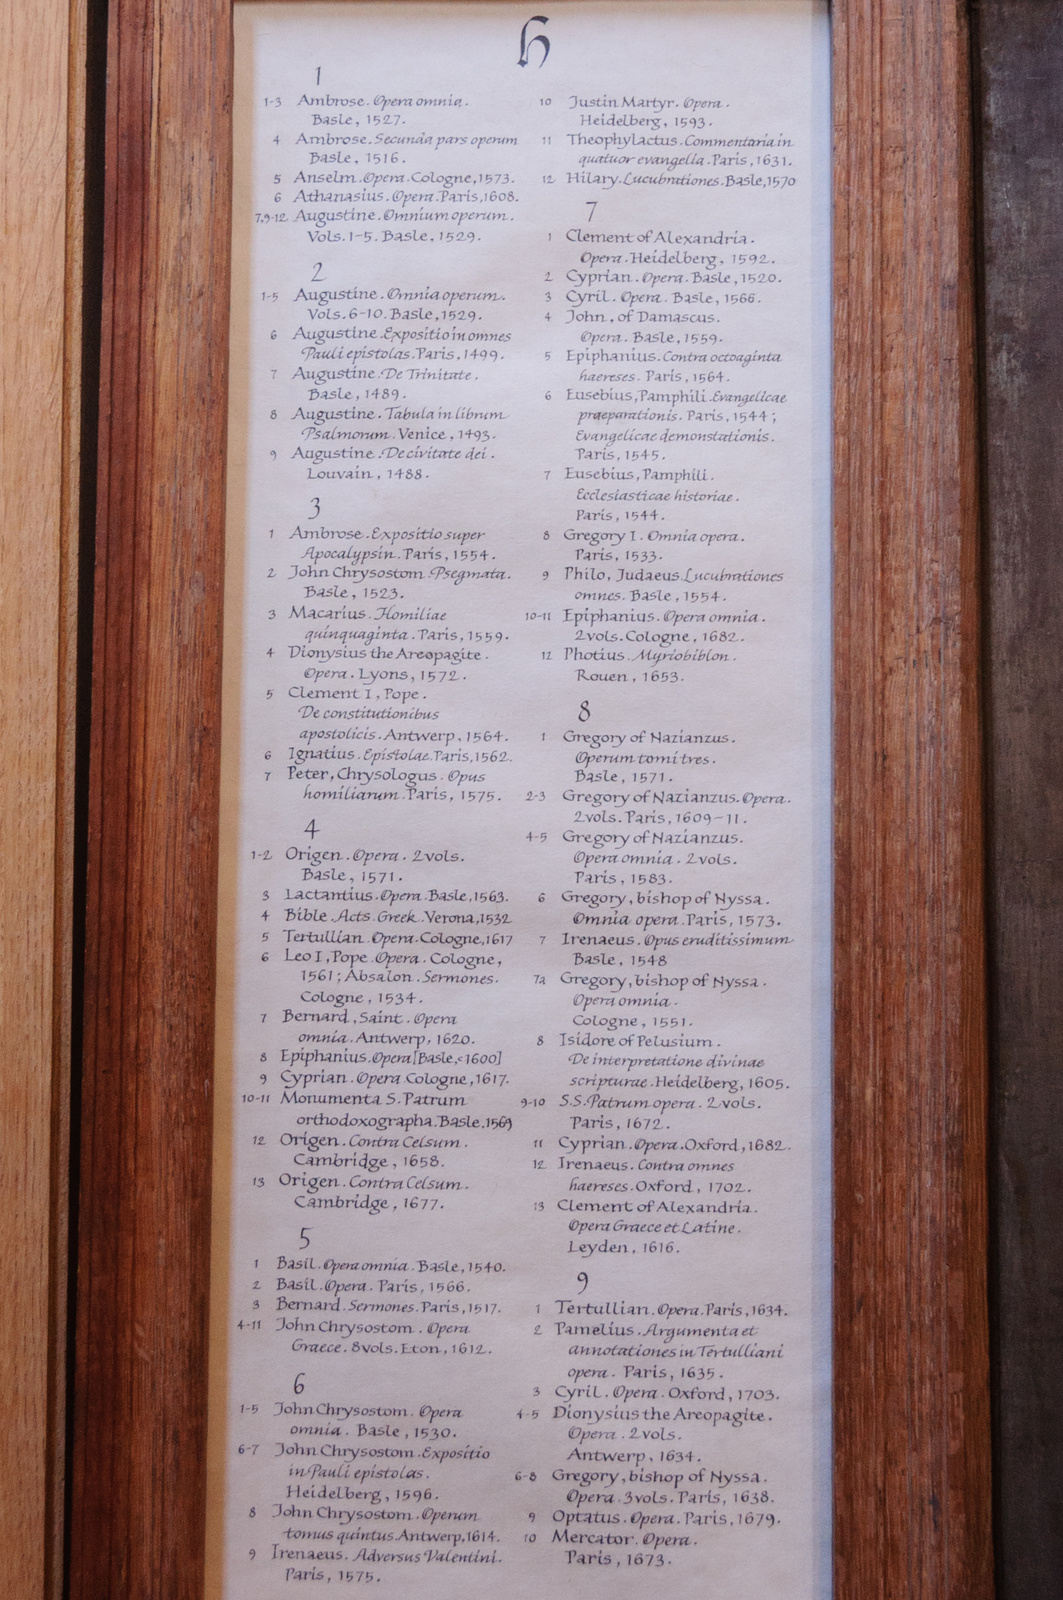 h
1
1-3 Ambrose. Opera omnia.
Basle, 1527.
4 Ambrose. Secunda pars operum
Basle, 1516.
5 Anselm. Opera. Cologne, 1573.
6 Athanasius. Opera. Paris, 1608.
7,9-12 Augustine. Omnium operum.
Vols. 1-5. Basle, 1529.
2
1-5 Augustine. Omnia operum.
Vols. 6-10. Basle, 1529.
6 Augustine. Expositio in omnes
Pauli epistolas. Paris, 1499.
7 Augustine. De Trinitate.
Basle, 1489.
8 Augustine. Tabula in librum
Psalmorum. Venice, 1493.
9 Augustine. De civitate dei.
Louvain, 1488.
3
1 Ambrose. Expositio super
Apocalypsin. Paris, 1554.
2 John Chrysostom. Psegmata.
Basle, 1523.
3 Macarius. Homiliae
quinquaginta. Paris, 1559.
4 Dionysius the Areopagite.
Opera. Lyons, 1572.
5 Clement I, Pope.
De constitutionibus
apostolicis. Antwerp, 1564.
6 Ignatius. Epistolae. Paris, 1562.
7 Peter, Chrysologus. Opus
homiliarum. Paris, 1575.
4
1-2 Origen. Opera. 2 vols.
Basle, 1571.
3 Lactantius. Opera. Basle, 1563.
4 Bible. Acts. Greek. Verona, 1532
5 Tertullian. Opera. Cologne, 1617
6 Leo I, Pope. Opera. Cologne,
1561; Absalon. Sermones.
Cologne, 1534.
7 Bernard, Saint. Opera
omnia. Antwerp, 1620.
8 Epiphanius. Opera [Basle, c1600]
9 Cyprian. Opera. Cologne, 1617.
10-11 Monumenta S. Patrum
orthodoxographa. Basle, 1569
12 Origen. Contra Celsum.
Cambridge, 1658.
13 Origen. Contra Celsum.
Cambridge, 1677.
5
1 Basil. Opera omnia. Basle, 1540.
2 Basil. Opera. Paris, 1566.
3 Bernard. Sermones. Paris, 1517.
4-11 John Chrysostom. Opera
Graece. 8 vols. Eton, 1612.
6
1-5 John Chrysostom. Opera
omnia. Basle, 1530.
6-7 John Chrysostom. Expositio
in Pauli epistolas.
Heidelberg, 1596.
8 John Chrysostom. Operum
tomus quintus. Antwerp, 1614.
9 Irenaeus. Adversus Valentini.
Paris, 1575.
10 Justin Martyr. Opera.
Heidelberg, 1593.
11 Theophylactus. Commentaria in
quatuor evangelia. Paris, 1631.
12 Hilary. Lucubrationes. Basle, 1570
7
1 Clement of Alexandria.
Opera. Heidelberg, 1592.
2 Cyprian. Opera. Basle, 1520.
3 Cyril. Opera. Basle, 1566.
4 John, of Damascus.
Opera. Basle, 1559.
5 Epiphanius. Contra octoaginta
haereses. Paris, 1564.
6 Eusebius, Pamphili. Evangelicae
praeparationis. Paris, 1544;
Evangelicae demonstationis.
Paris, 1545.
7 Eusebius, Pamphili.
Ecclesiasticae historiae.
Paris, 1544.
8 Gregory I. Omnia opera.
Paris, 1533.
9 Philo, Judaeus. Lucubrationes
omnes. Basle, 1554.
10-11 Epiphanius. Opera omnia.
2 vols. Cologne, 1682.
12 Photius. Myriobiblon.
Rouen, 1653.
8
1 Gregory of Nazianzus.
Operum tomi tres.
Basle, 1571.
2-3 Gregory of Nazianzus. Opera.
2 vols. Paris, 1609-11.
4-5 Gregory of Nazianzus.
Opera omnia. 2 vols.
Paris, 1583.
6 Gregory, bishop of Nyssa.
Omnia opera. Paris, 1573.
7 Irenaeus. Opus eruditissimum
Basle, 1548
7a Gregory, bishop of Nyssa.
Opera omnia.
Cologne, 1551.
8 Isidore of Pelusium.
De interpretatione divinae
scripturae. Heidelberg, 1605.
9-10 S.S. Patrum opera. 2 vols.
Paris, 1672.
11 Cyprian. Opera. Oxford, 1682.
12 Irenaeus. Contra omnes
haereses. Oxford, 1702.
13 Clement of Alexandria.
Opera Graece et Latine.
Leyden, 1616.
9
1 Tertullian. Opera. Paris, 1634.
2 Pamelius. Argumenta et
annotationes in Tertulliani
opera. Paris, 1635.
3 Cyril. Opera. Oxford, 1703.
4-5 Dionysius the Areopagite.
Opera. 2 vols.
Antwerp, 1634.
6-8 Gregory, bishop of Nyssa.
Opera. 3 vols. Paris, 1638.
9 Optatus. Opera. Paris, 1679.
10 Mercator. Opera.
Paris, 1673.